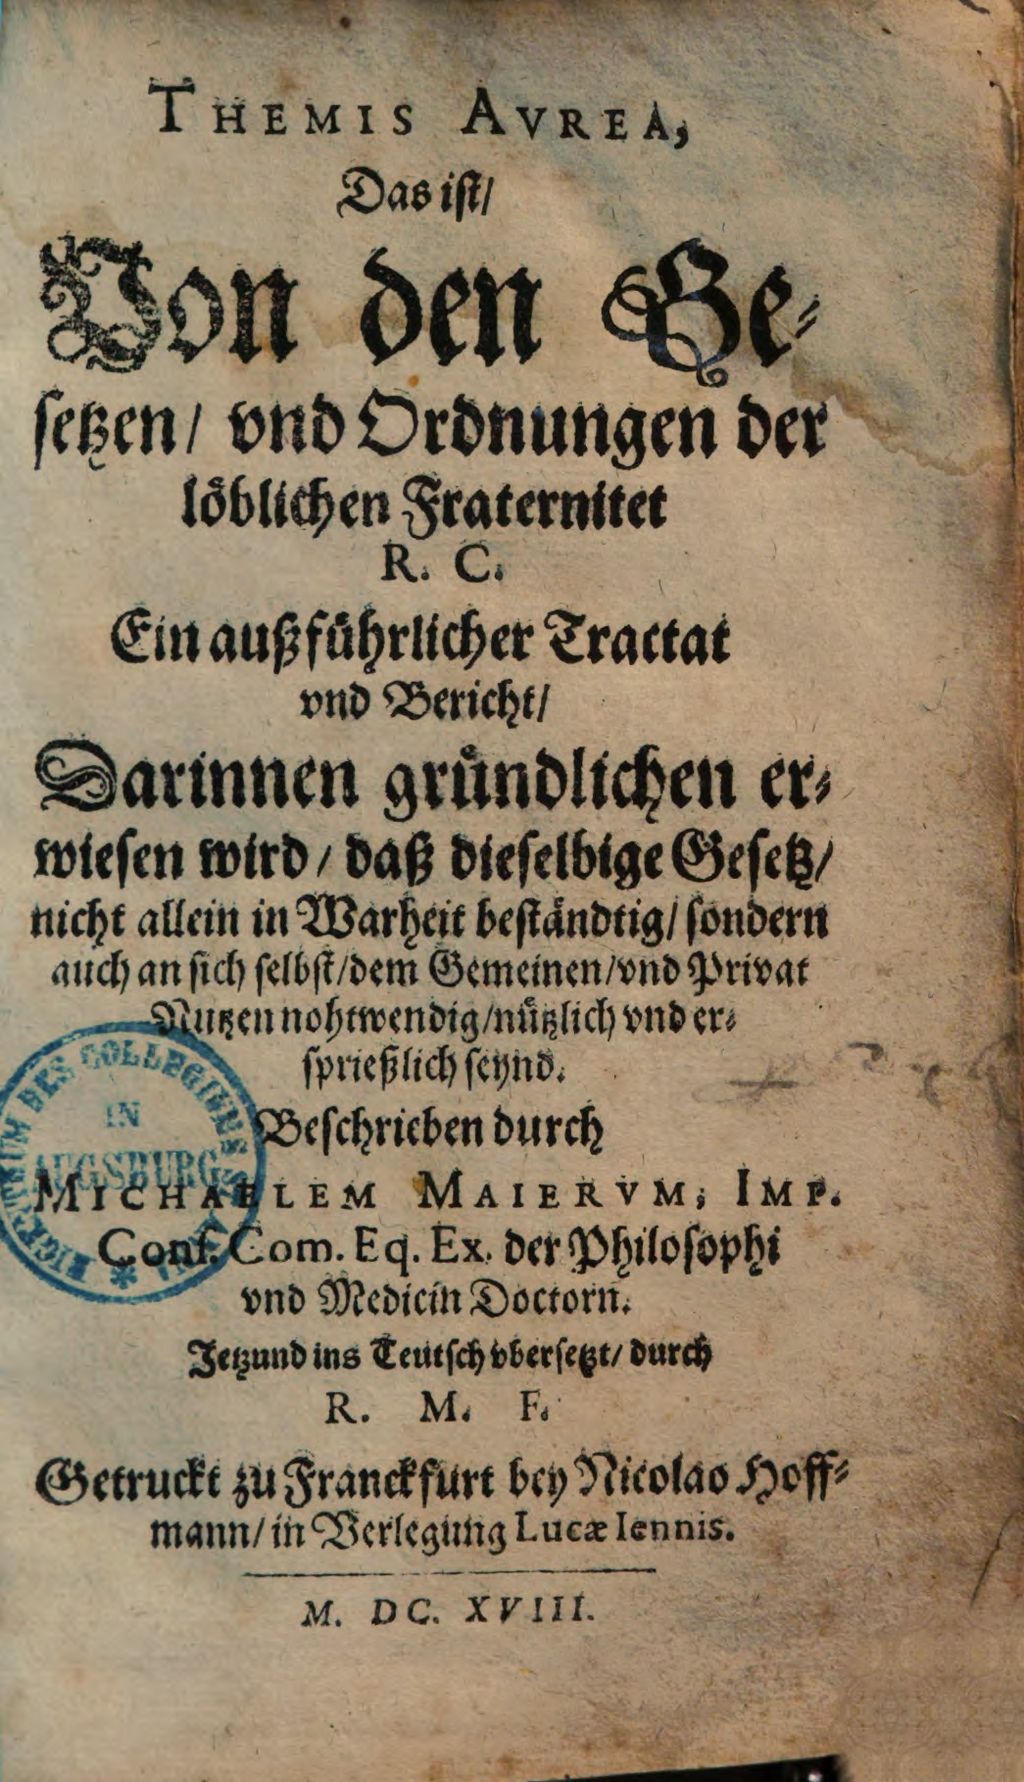 THEMIS AVREA,
Das ist/
Von den Ge-
setzen/ vnd Ordnungen der
löblichen Fraternitet
R. C.
Ein außführlicher Tractat
vnd Bericht/
Darinnen gründlichen er-
wiesen wird/ daß dieselbige Gesetz/
nicht allein in Warheit beständtig/ sondern
auch an sich selbst/dem Gemeinen/vnd Privat
Nutzen nohtwendig/nützlich vnd er-
sprießlich seynd.
Beschrieben durch
MICHAELEM MAIERVM, IMP.
Conf. Com. Eq. Ex. der Philosophi
vnd Medicin Doctorn.
Jetzund ins Teutsch vbersetzt/ durch
R. M. F.
Getruckt zu Franckfurt bey Nicolao Hoff-
mann/ in Verlegung Lucæ Iennis.
M. DC. XVIII.
DES COLLEGIUMS
IN
AUGSBURG